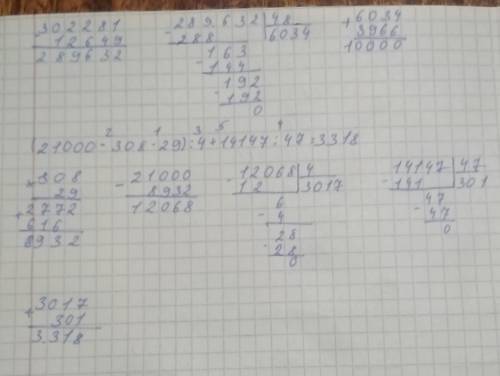 302281
12649
289632
- 289632 | 48
288 6034
- 163
144
- 192
192
0
+ 6034
3966
10000
2 1 3 5 4
(21000-308·29):4+14147:47=3318
× 308
29
+ 2772
616
8932
- 21000
8932
12068
- 12068 | 4
12 3017
6
- 4
28
- 28
0
- 14147 | 47
141 301
47
- 47
0
+ 3017
301
3318